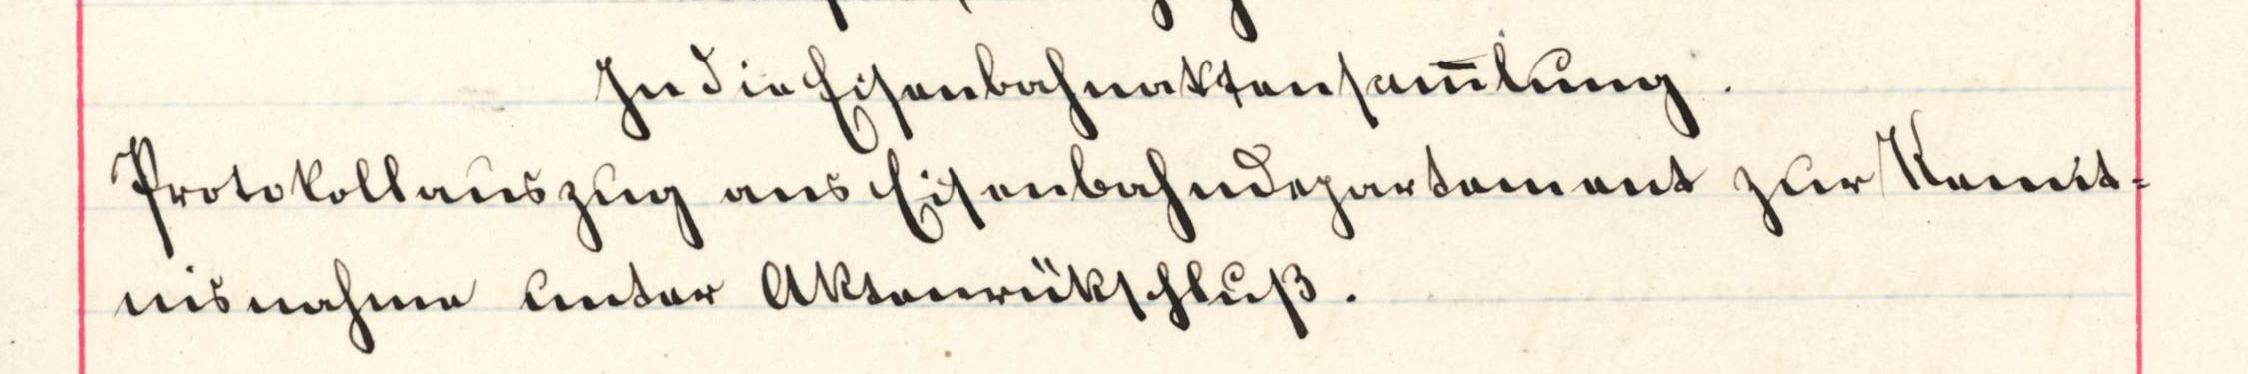 In die Eisenbahnaktensam̅lung.
Protokollauszug ans Eisenbahndepartement zur Kennt-
nisnahme unter Aktenrükschluß.